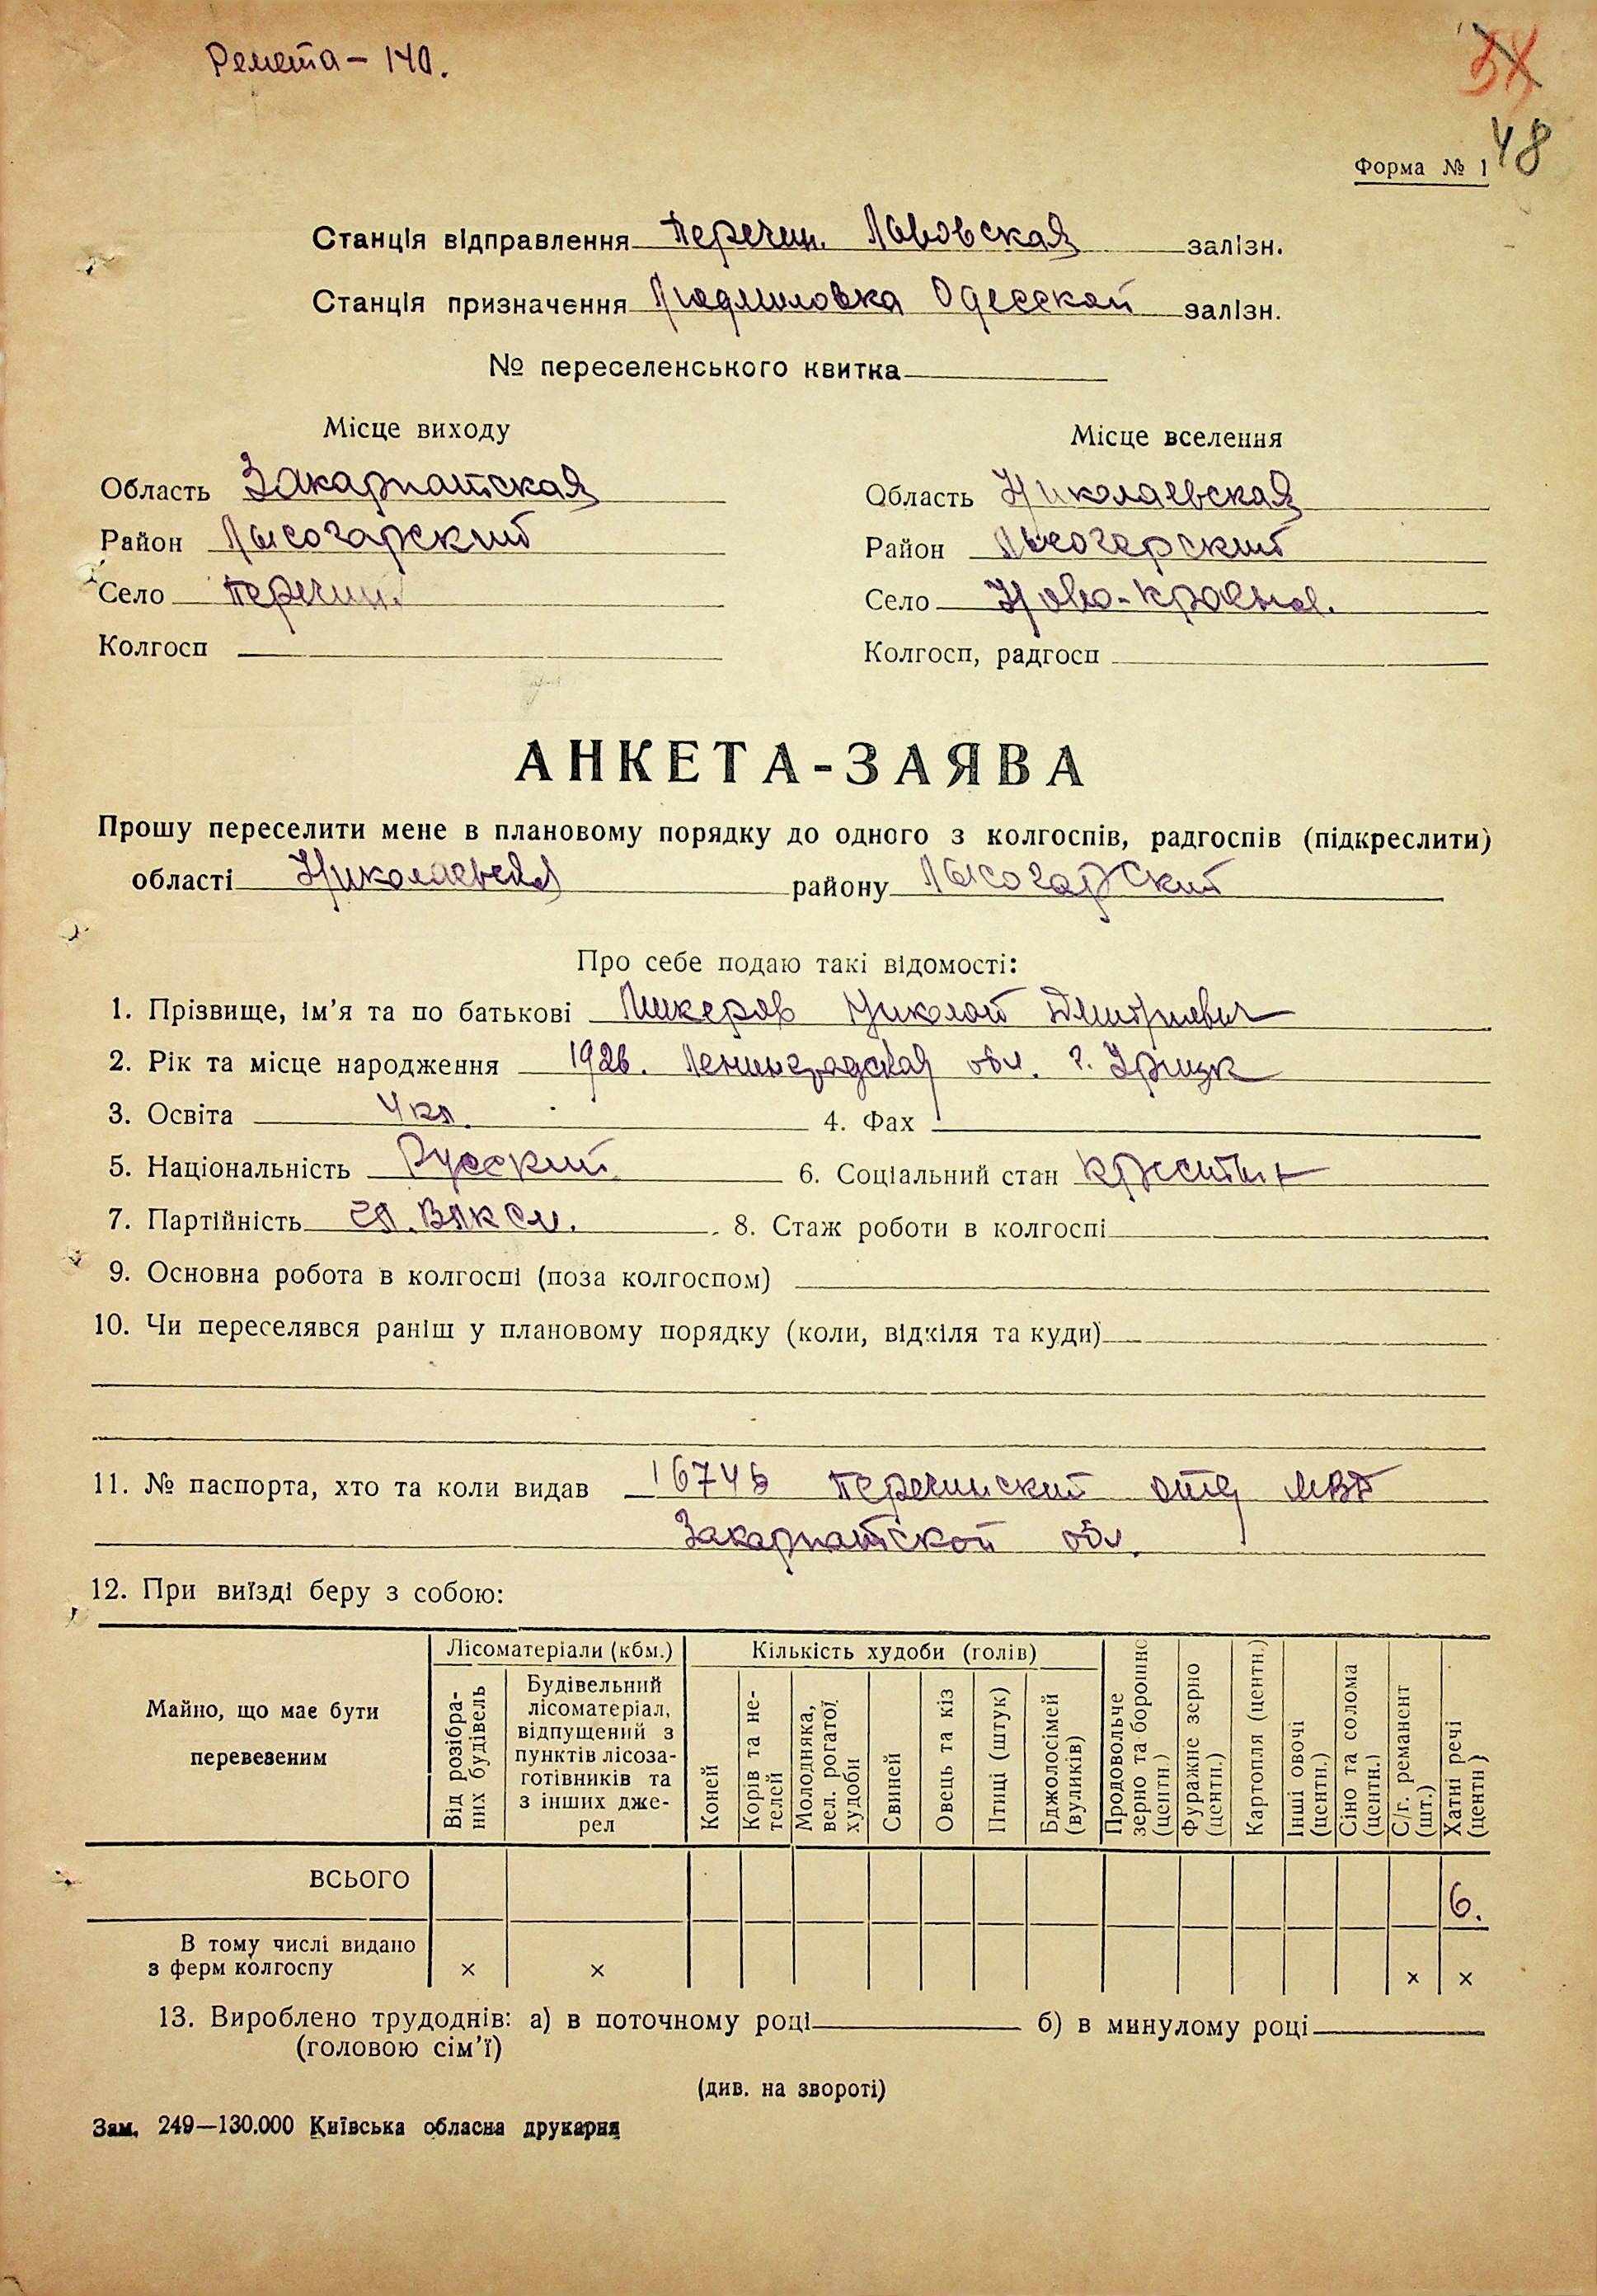 Ремета – 140.
48
Форма № 1
Станція відправлення Перечин. Львовская залізн.
Станція призначення Людмиловка Одесской залізн.
№ переселенського квитка
Місце виходу
Місце вселення
Область Закарпатская
Область Николаевская
Район Лысогарский
Район Лысогорский
Село Перечин.
Село Ново-Красное.
Колгосп
Колгосп, радгосп
АНКЕТА-ЗАЯВА
Прошу переселити мене в плановому порядку до одного з колгоспів, радгоспів (підкреслити)
області Николаевская району Лысогарский
Про себе подаю такі відомості:
1. Прізвище, ім’я та по батькові Николай Дмитриевич
2. Рік та місце народження 1926. Ленинградская обл. г. Урицк
3. Освіта 4 кл. 4. Фах
5. Національність Русский 6. Соціальний стан крестьян
7. Партійність чл. ВЛКСМ. 8. Стаж роботи в колгоспі
9. Основна робота в колгоспі (поза колгоспом)
10. Чи переселявся раніш у плановому порядку (коли, відкіля та куди)
11. № паспорта, хто та коли видав Перечинский отд МВД
Закарпатской обл.
12. При виїзді беру з собою:
Майно, що має бути перевезеним
Лісоматеріали (кбм.)
Кількість худоби (голів)
Від розібраних будівель
Будівельний лісоматеріал, відпущений з пунктів лісозаготівників та з інших джерел
Коней
Корів та нетелей
Молодняка, вел. рогатої худоби
Свиней
Овець та кіз
Птиці (штук)
Бджолосімей (вуликів)
Продовольче зерно та борошно (центн.)
Фуражне зерно (центн.)
Картопля (центн.)
Інші овочі (центн.)
Сіно та солома (центн.)
С/г. реманент (шт.)
Хатні речі (центн)
ВСЬОГО 6.
В тому числі видано
з ферм колгоспу × × × ×
13. Вироблено трудоднів: а) в поточному році б) в минулому році
(головою сім’ї)
(див. на звороті)
Зам. 249—130.000 Київська обласна друкарня